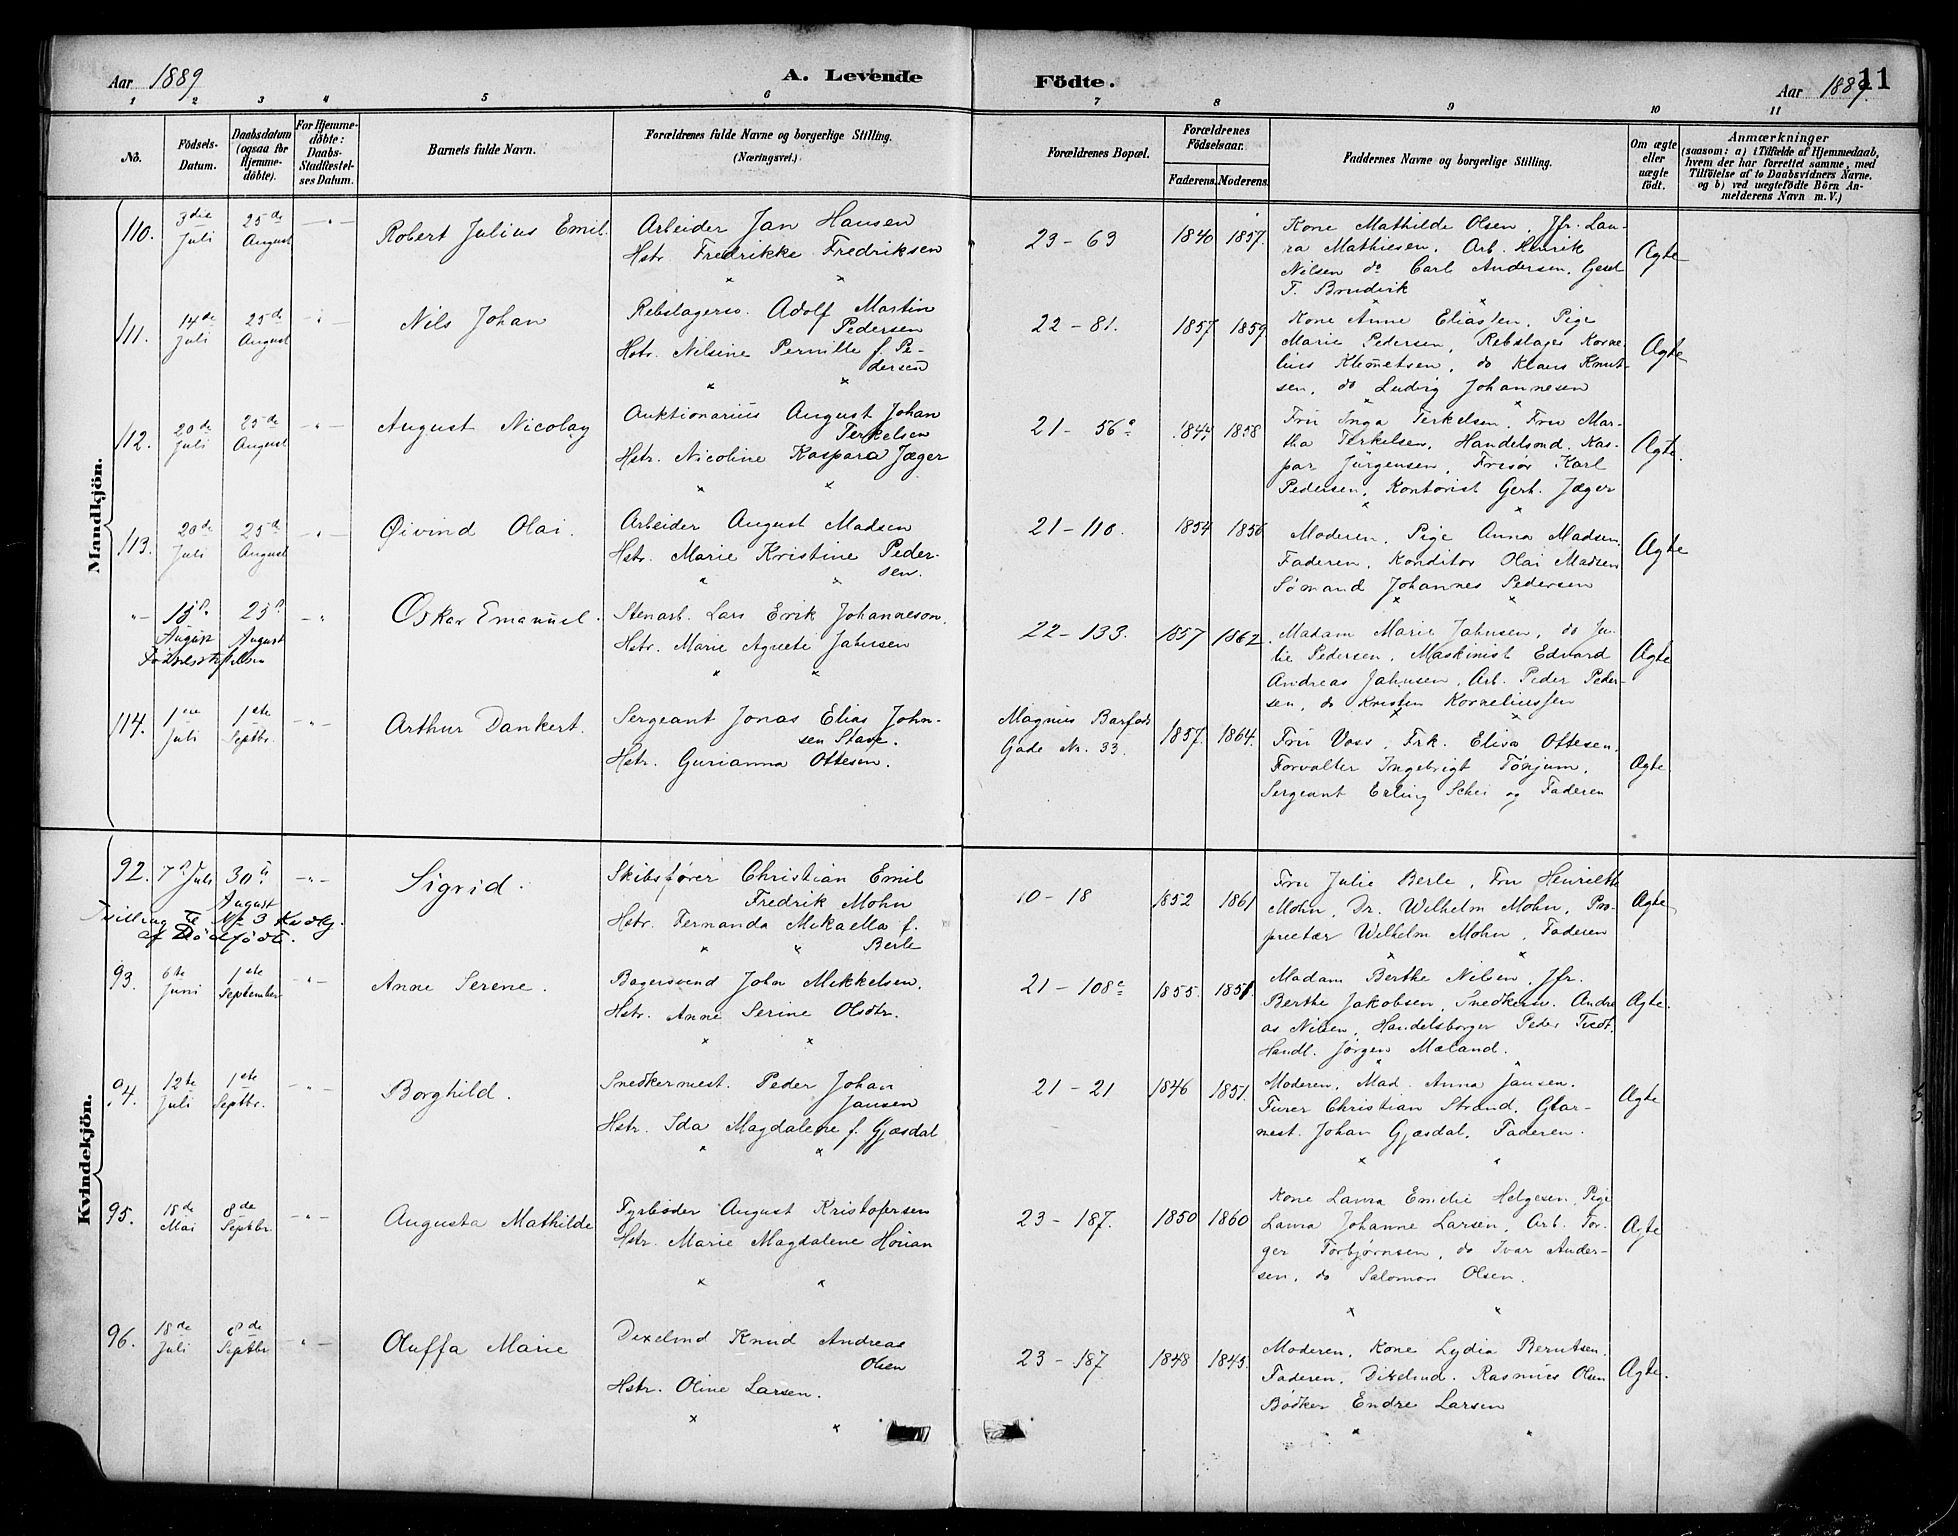 Aar 1889 A. Levende Födte. Aar 1889. 11
1 2 3 4 5 6 7 8 9 10 11
No. Födsels-Datum. Daabsdatum (ogsaa for Hjemme-döbte). For Hjemme-döbte: Daabs-Stadfæstel-ses Datum. Barnets fulde Navn. Forældrenes fulde Navne og borgerlige Stilling. (Næringsvei.) Forældrenes Bopæl. Forældrenes Födselsaar. Faderens. Moderens. Faddernes Navne og borgerlige Stilling. Om ægte eller uægte födt. Anmærkninger
(saasom: a) i Tilfælde af Hjemmedaab,
hvem der har forrettet samme, med
Tilföielse af to Daabsvidners Navne,
og b) ved uægtefödte Börn An-
melderens Navn m. V.)
Mandkjön.
110. 3die Juli 25de August -"- Robert Julius Emil. Arbeider Jan Hansen
Hstr. Fredrikke Fredriksen
23-69 1840 1857. Kone Mathilde Olsen, Jfr. Lau-
ra Mathiesen, Arb. Henrik
Nilsen do Carl Andersen,
T. Brudvik
Ægte
111. 14de Juli 25de August -"- Nils Johan Rebslagersv. Adolf Martin
Pedersen
Hstr. Nilsine Pernille f. Pe-
dersen
22-81. 1857 1859. Kone Anne Eliassen, Pige
Marie Pedersen, Rebslager Korne-
lius Klemetsen, do Klaus Knut-
sen, do Ludvig Johannesen
Ægte
112. 20de Juli 25de August -"- August Nicolay Auktionarius August Johan
Terkelsen
Hstr. Nicoline Kaspara Jæger
21-56a 1844 1858 Fru Inga Terkelsen, Fru Mar-
tha Terkelsen, Handelsmd. Kas-
par Jürgensen, Frisör Karl
Pedersen, Kontorist Gert. Jæger
Ægte.
113. 20de Juli 25de August -"- Øivind Olai. Arbeider August Madsen
Hstr. Marie Kristine Peder-
sen.
21-110. 1854 1856 Moderen, Pige Anna Madsen,
Faderen, Konditor Olai Madsen
Sømand Johannes Pedersen
Ægte
-"- 25 August -" Oskar Emanuel. Stenarb. Lars Erik Johanneson.
Hstr. Marie Agnete Jahnsen
22-133. 1857 1862. Madam Marie Jahnsen, do Ju-
lie Pedersen, Maskinist Edvard
Andreas Jahnsen, Arb. Peder Peder-
sen, do Kristen Korneliussen
Ægte
114. Juli 1ste Septbr. -"- Arthur Dankert. Sergeant Jonas Elias John-
sen Stave.
Hstr. Gurianna Ottesen.
Magnus Barfods
Gade Nr. 33.
1857. 1864. Fru Voss, Frk. Elisa Ottesen.
Forvalter Ingebrigt Tönjum,
Sergeant Erling Schei og Faderen
Ægte
Kvindekjön.
92. 7d Juli 30te August -"- Sigrid. Skibsfører Christian Emil
Fredrik Mohn
Hstr. Fernanda Mikaella f.
Berle
Tvilling Til No 3 Kvdkj.
af Dödfödte.
10-18 1852 1861 Fru Julie Berle, Fru Henriette
Mohn, Dr. Wilhelm Mohn, Pro-
prietær Wilhelm Mohn, Faderen
Ægte
93. 6te Juni 1ste September -"- Anne Serene. Bagersvend John Mikkelsen.
Hstr. Anne Serine Olsdtr.
21-108c 1855. 1851. Madam Berthe Nilsen, Jfr.
Berthe Jakobsen, Snedkersv. Andre
as Nilsen, Handelsborger Peder Tvedt.
Handl. Jørgen Mæland.
Ægte.
94. 12te Juli 1ste Septbr. -"- Borghild. Snedkermest. Peder Johan
Jansen
Hstr. Ida Magdalene f. Gjæsdal
21-21 1846 1851. Moderen, Mad. Anna Jansen.
Furer Christian Strand, Glar-
mest. Johan Gjæsdal, Faderen.
Ægte
95. 18de Mai 8de Septbr -"- Augusta Mathilde Fyrbøder August Kristofersen
Hstr. Marie Magdalene
23-187. 1850 1860 Kone Laura Emelie Helgesen, Pige
Laura Johanne Larsen, Arb. Tor-
ger Torbjørnsen, do Ivar Ander-
sen, do Salomon Olsen.
Ægte
96. 18de Juli 8de Septbr -"- Oluffa Marie Dixelmd Knud Andreas
Olsen
Hstr. Oline Larsen.
23-187 1848 1845. Moderen, Kone Lydia Berntsen.
Faderen, Dixelmd. Rasmus Olsen
Bødker Endre Larsen
Ægte.